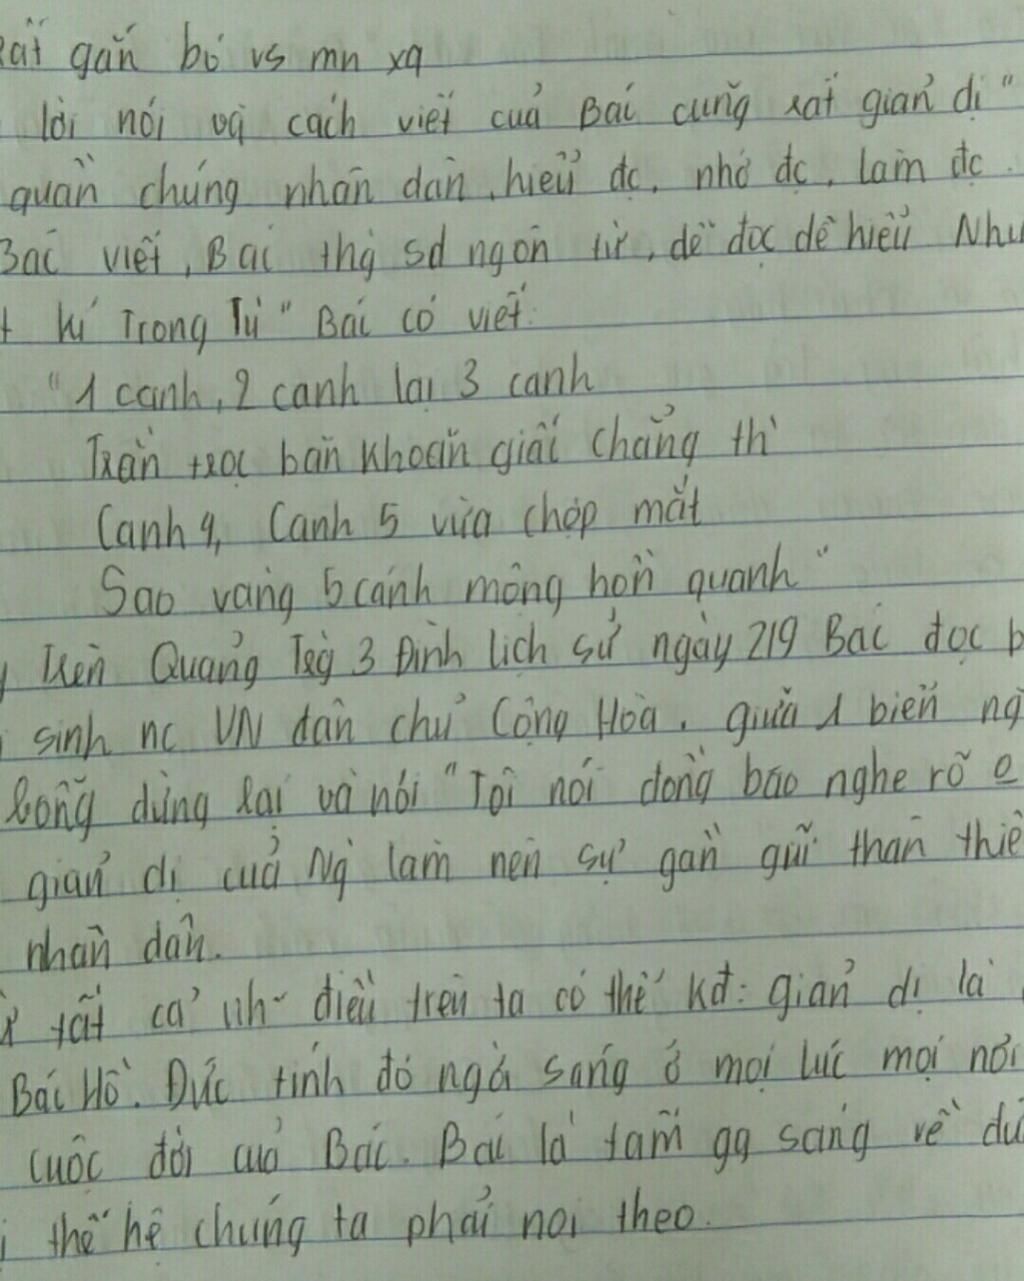 rất gắn bó vs mn xq
lời nói và cách viết của Bác cũng rất giản dị "
quần chúng nhân dân, hiểu đc, nhớ đc, làm đc.
Bác viết, Bác thg sd ngôn từ, dễ đọc dễ hiểu Như
kí Trong Tù" Bác có viết:
"1 canh, 2 canh lại 3 canh
Trằn trọc băn khoăn giấc chẳng th`
Canh 4, Canh 5 vừa chợp mắt
Sao vàng 5 cánh mộng hồn quanh"
Trên Quảng Trg 3 Đình lịch sử ngày 2/9 Bác đọc b
sinh nc VN dân chủ Cộng Hòa, giữa 1 biển ng
bỗng dừng lại và nói "Tôi nói đồng bào nghe rõ
giản dị của Ng làm nên sự gần gũi thân thiế
nhân dân.
tất cả nh~ điều trên ta có thể kđ: giản dị là
Bác Hồ. Đức tính đó ngời sáng ở mọi lúc mọi nơi
cuộc đời của Bác. Bác là tấm gg sáng về đứ
thế hệ chúng ta phải noi theo.